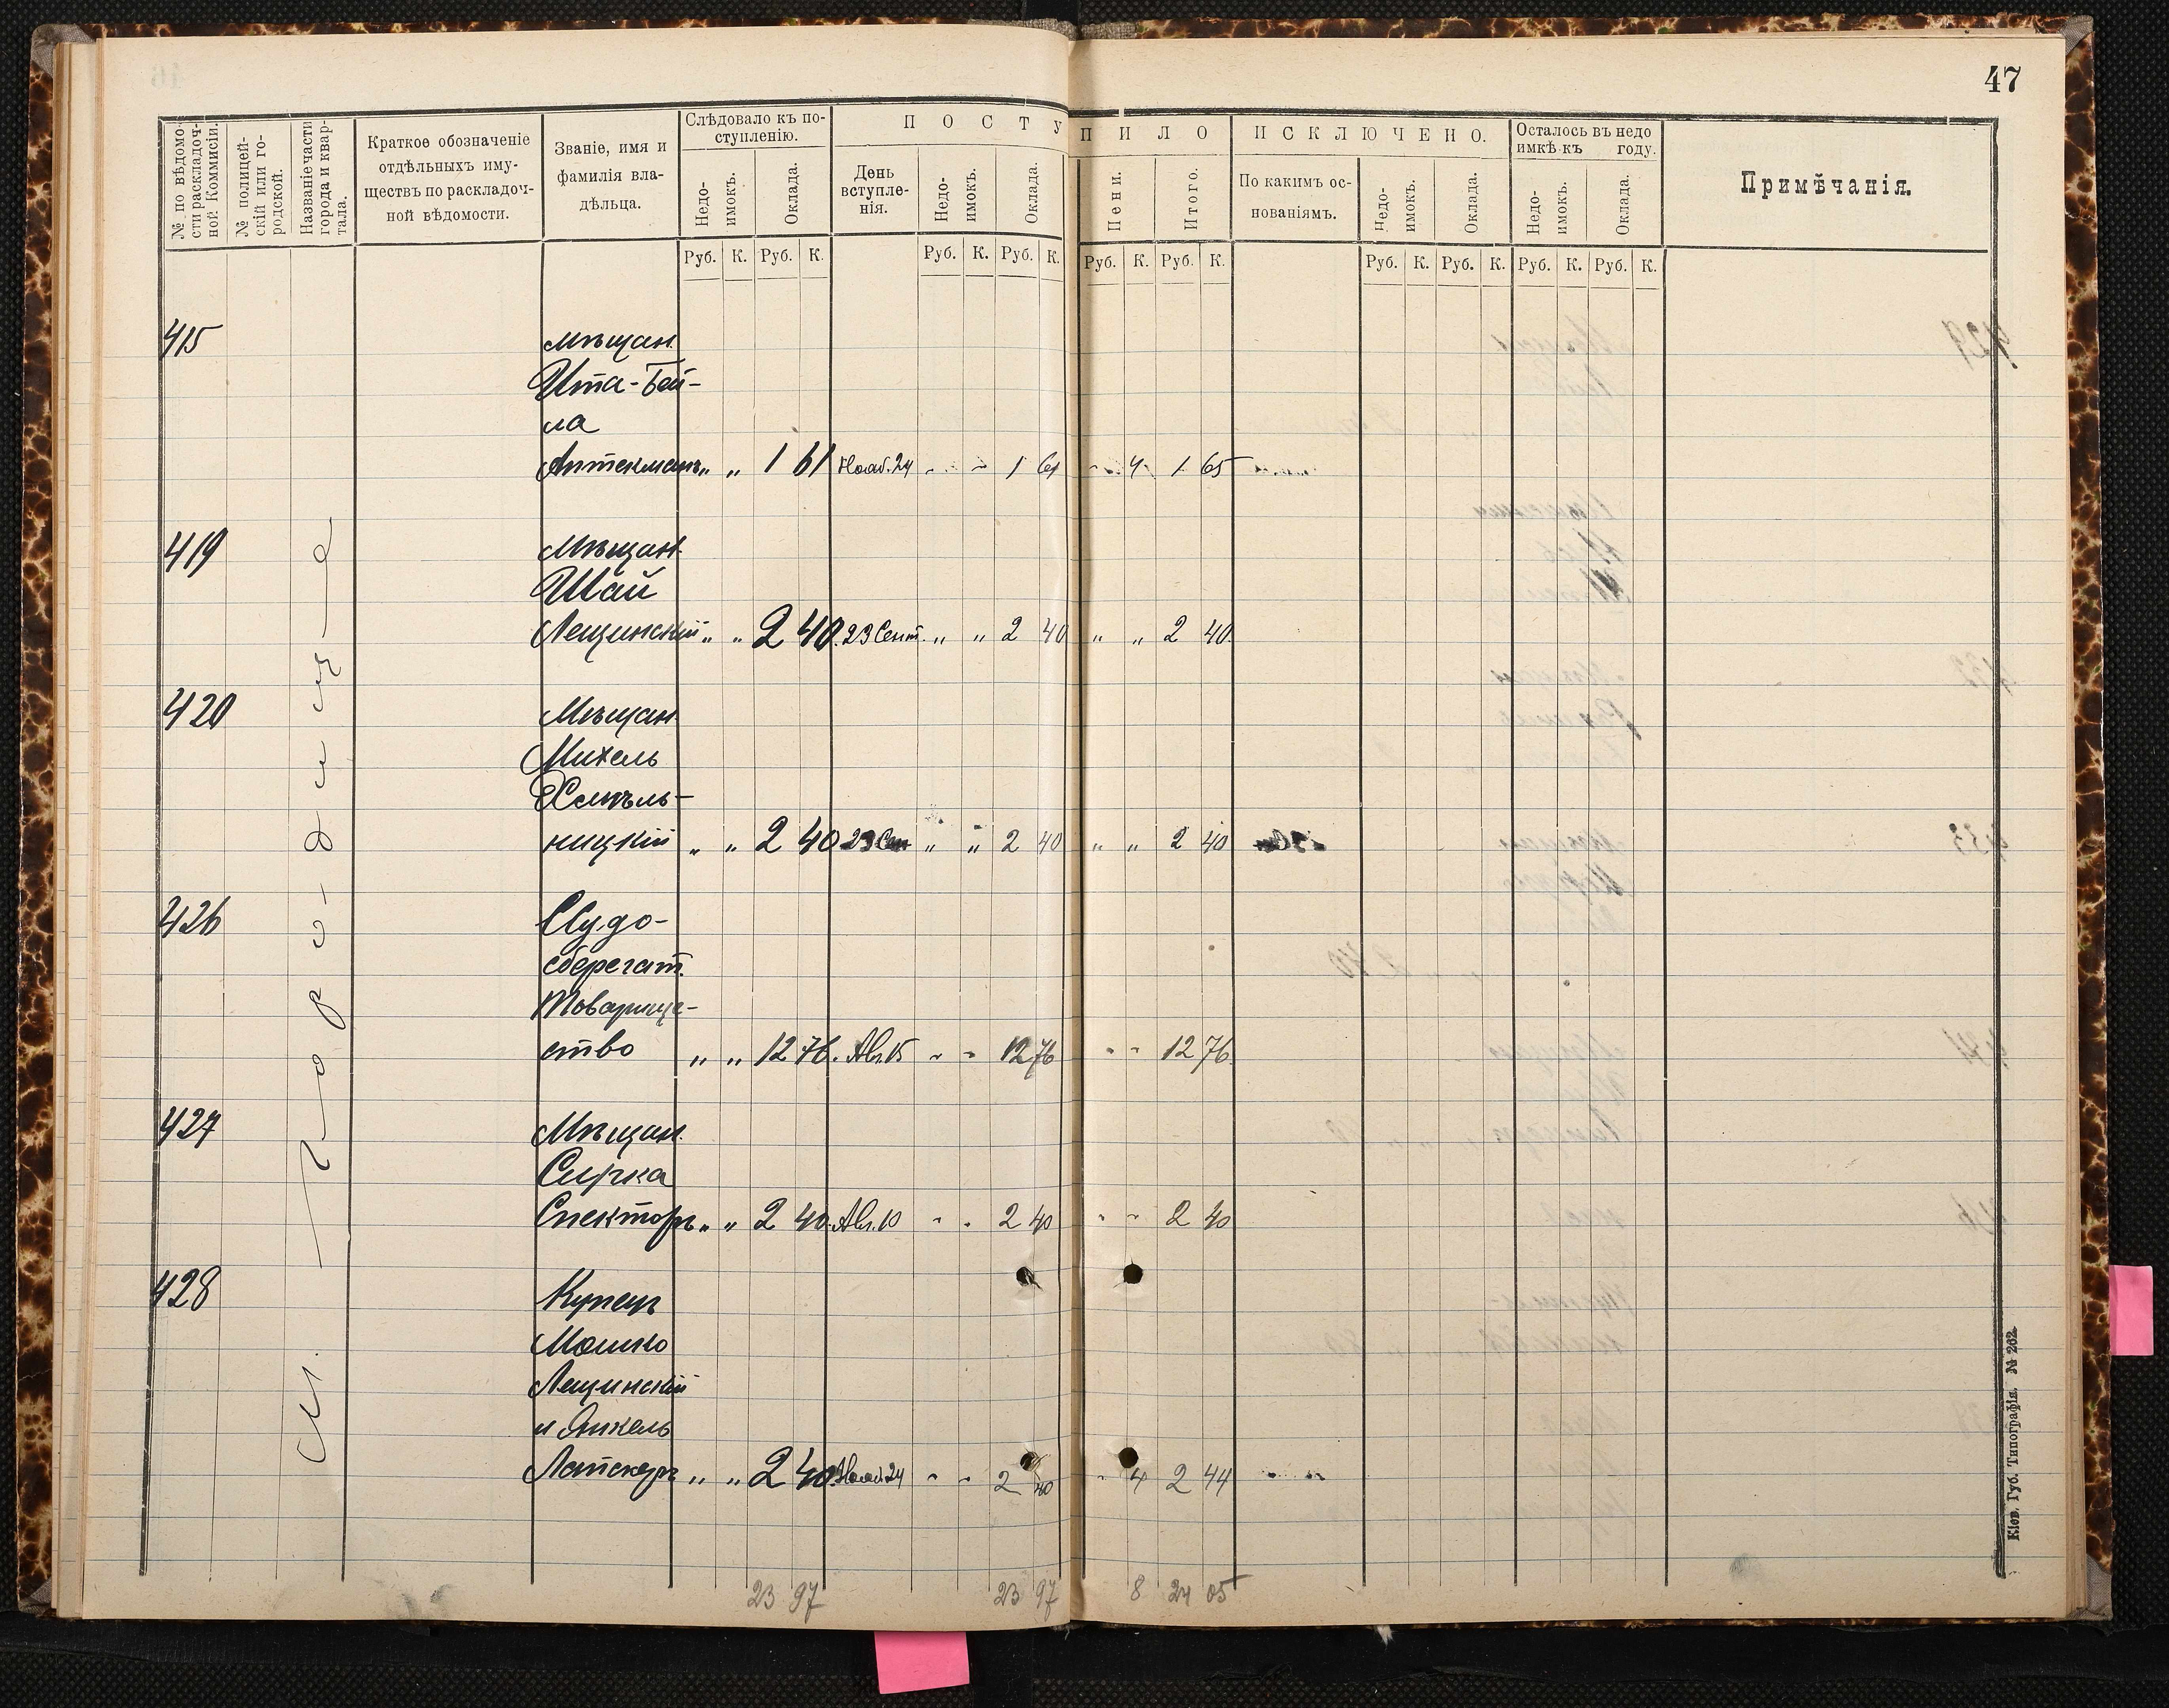 47
№ по вѣдомо-
сти раскладоч-
ной Коммисіи.
№ полицей-
скій или го-
родской.
Названіе части
города и квар-
тала.
Краткое обозначеніе
отдѣльныхъ иму-
ществъ по раскладоч-
ной вѣдомости.
Званіе, имя и
фамилія вла-
дѣльца.
Слѣдовало къ по-
ступленію.
Недо-
имокъ.
Оклада.
ПОСТУПИЛО
День
вступле-
нія.
Недо-
имокъ.
Оклада.
Пени.
Итого.
ИСКЛЮЧЕНО.
По какимъ ос-
нованіямъ.
Недо-
имокъ.
Оклада.
Осталось въ недо
имкѣ къ году.
Недо-
имокъ.
Оклада.
Примѣчанія.
Руб. К. Руб. К. Руб. К. Руб. К. Руб. К. Руб. К. Руб. К. Руб. К. Руб. К. Руб. К.
м. Городище
415 мѣщан.
Ита-Бей-
ла
Аптекманъ „ „ 1 61 Нояб. 24 „ „ 1 61 „ 4 1 65
419 Мѣщан.
Шай
Лещинскій „ „ 2 40. 23 Сент. „ „ 2 40 „ „ 2 40.
420 Мѣщан.
Михель
Хмѣль-
ницкій „ „ 2 40 23 Сен „ „ 2 40 „ „ 2 40
426 Ссудо-
сберегат.
Товарище-
ство „ „ 12 76. Авг. 15 „ „ 12 76 „ „ 12 76.
427 Мѣщан.
Сурка
Спекторъ „ „ 2 40. Авг. 10 „ „ 2 40 „ „ 2 40
428 Купецъ
Мошко
Лещинскій
и Янкель
„ „ 2 40. Нояб. 24 „ „ 2 40 „ 4 2 44
23 97 23 97 8 24 05
Кіев. Губ. Типографія. № 262.